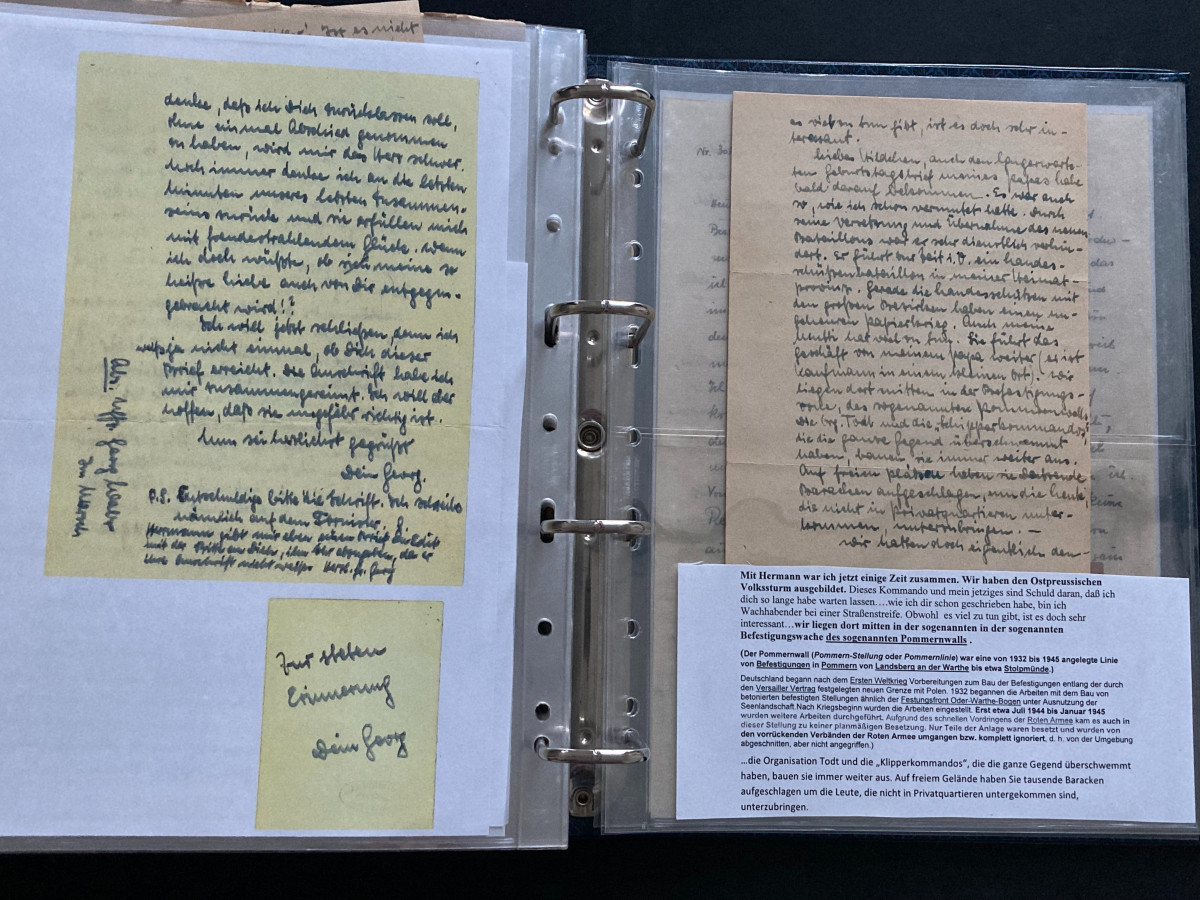 ist es nicht
denke, daß ich Dich zurücklassen soll,
ohne einmal Abschied genommen
zu haben, wird mir das Herz schwer.
Auch immer denke ich an die letzten
Minuten unseres letzten Zusammen-
seins zurück und sie erfüllen mich
mit freudestrahlendem Glücke. Wenn
ich doch wüßte, ob sich meine so
heiße Liebe auch von Dir entgegen-
gebracht wird!?
Ich will jetzt schließen, denn ich
weiß ja nicht einmal, ob Dich dieser
Brief erreicht. Die Anschrift habe ich
mir zusammengereimt. Ich will aber
hoffen, daß sie ungefähr richtig ist.
Nun sei herzlichst gegrüßt
Dein Georg.
P.S. Entschuldige bitte die Schrift. Ich schreibe
nämlich auf dem Tornister.
Hermann gibt mir eben einen Brief
mit der Bitte an Dich, ihn abzugeben, da er
Eure Anschrift nicht weiß. Herzl. Gr. Georg
Abs. Uffz. Georg
Zur steten
Erinnerung
Dein Georg
Nr.
es viel zu tun gibt, ist es doch sehr in-
teressant.
Liebes Hildchen, auch den langerwarte-
ten Geburtstagsbrief meines Papas habe
bald darauf bekommen. Es war auch
so, wie ich schon vermutet hatte. Durch
seine Versetzung und Übernahme des neuen
Bataillons war er sehr dienstlich verhin-
dert. Er führt zur Zeit i.V. ein Landes-
schützenbataillon in meiner Heimat-
provinz. Gerade die Landesschützen mit
den großen Bezirken haben einen un-
geheuren Papierkrieg. Auch meine
Mutti hat viel zu tun. Sie führt das
Geschäft von meinem Papa weiter (er ist
Kaufmann in einem kleinen Ort). Wir
liegen dort mitten in der Befestigungs-
zone, des sogenannten Pommernwalls.
Die Org. Todt und die „Schipperkommandos",
die die ganze Gegend überschwemmt
haben, bauen sie immer weiter aus.
Auf freien Plätzen haben sie tausende
Baracken aufgeschlagen, um die Leute,
die nicht in Privatquartieren unter-
kommen, unterzubringen. –
Wir hatten doch eigentlich den
Mit Hermann war ich jetzt einige Zeit zusammen. Wir haben den Ostpreussischen
Volkssturm ausgebildet. Dieses Kommando und mein jetziges sind Schuld daran, daß ich
dich so lange habe warten lassen….wie ich dir schon geschrieben habe, bin ich
Wachhabender bei einer Straßenstreife. Obwohl es viel zu tun gibt, ist es doch sehr
interessant…wir liegen dort mitten in der sogenannten in der sogenannten
Befestigungswache des sogenannten Pommernwalls .
(Der Pommernwall (Pommern-Stellung oder Pommernlinie) war eine von 1932 bis 1945 angelegte Linie
von Befestigungen in Pommern von Landsberg an der Warthe bis etwa Stolpmünde.)
Deutschland begann nach dem Ersten Weltkrieg Vorbereitungen zum Bau der Befestigungen entlang der durch
den Versailler Vertrag festgelegten neuen Grenze mit Polen. 1932 begannen die Arbeiten mit dem Bau von
betonierten befestigten Stellungen ähnlich der Festungsfront Oder-Warthe-Bogen unter Ausnutzung der
Seenlandschaft.Nach Kriegsbeginn wurden die Arbeiten eingestellt. Erst etwa Juli 1944 bis Januar 1945
wurden weitere Arbeiten durchgeführt. Aufgrund des schnellen Vordringens der Roten Armee kam es auch in
dieser Stellung zu keiner planmäßigen Besetzung. Nur Teile der Anlage waren besetzt und wurden von
den vorrückenden Verbänden der Roten Armee umgangen bzw. komplett ignoriert, d. h. von der Umgebung
abgeschnitten, aber nicht angegriffen.)
…die Organisation Todt und die „Klipperkommandos", die die ganze Gegend überschwemmt
haben, bauen sie immer weiter aus. Auf freiem Gelände haben Sie tausende Baracken
aufgeschlagen um die Leute, die nicht in Privatquartieren untergekommen sind,
unterzubringen.